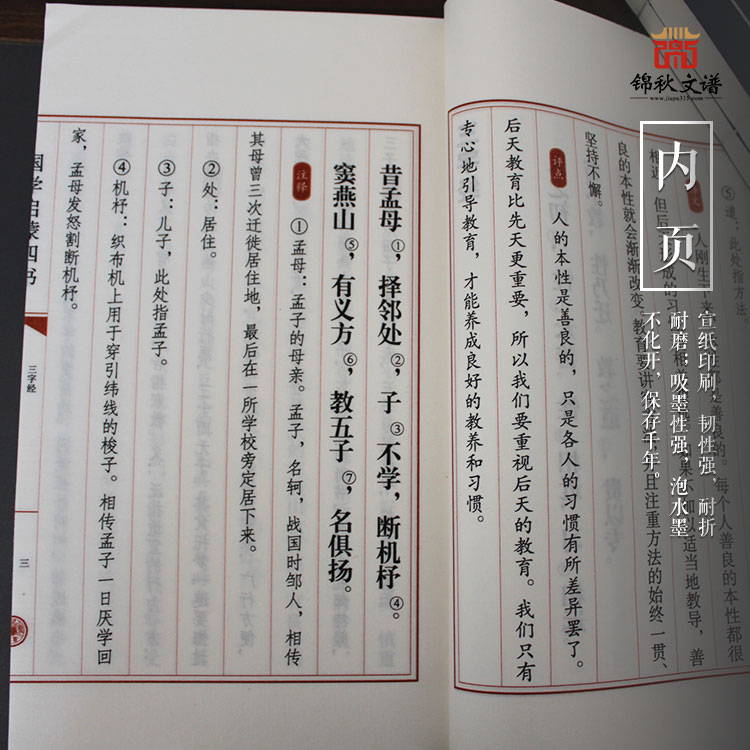 锦秋文谱
www.jiapu315.com
内页
宣纸印刷，韧性强、耐折
耐磨；吸墨性强，泡水墨
不化开，保存千年。
⑤道：此处指方法。
人刚生 来 是善良的。每个人善良的本性都很
相近，但后 成的习 相 如果不加以适当地教导，善
良的本性就会渐渐改变。教育要讲 且注重方法的始终一贯、
坚持不懈。
评点 人的本性是善良的，只是各人的习惯有所差异罢了。
后天教育比先天更重要，所以我们要重视后天的教育。我们只有
专心地引导教育，才能养成良好的教养和习惯。
昔孟母①，择邻处②，子③不学，断机杼④。
窦燕山⑤，有义方⑥，教五子⑦，名俱扬。
注释 ①孟母：孟子的母亲。孟子，名轲，战国时邹人，相传
其母曾三次迁徙居住地，最后在一所学校旁定居下来。
②处：居住。
③子：儿子，此处指孟子。
④机杼：织布机上用于穿引纬线的梭子。相传孟子一日厌学回
家，孟母发怒割断机杼。
国学启蒙四书
三字经
三